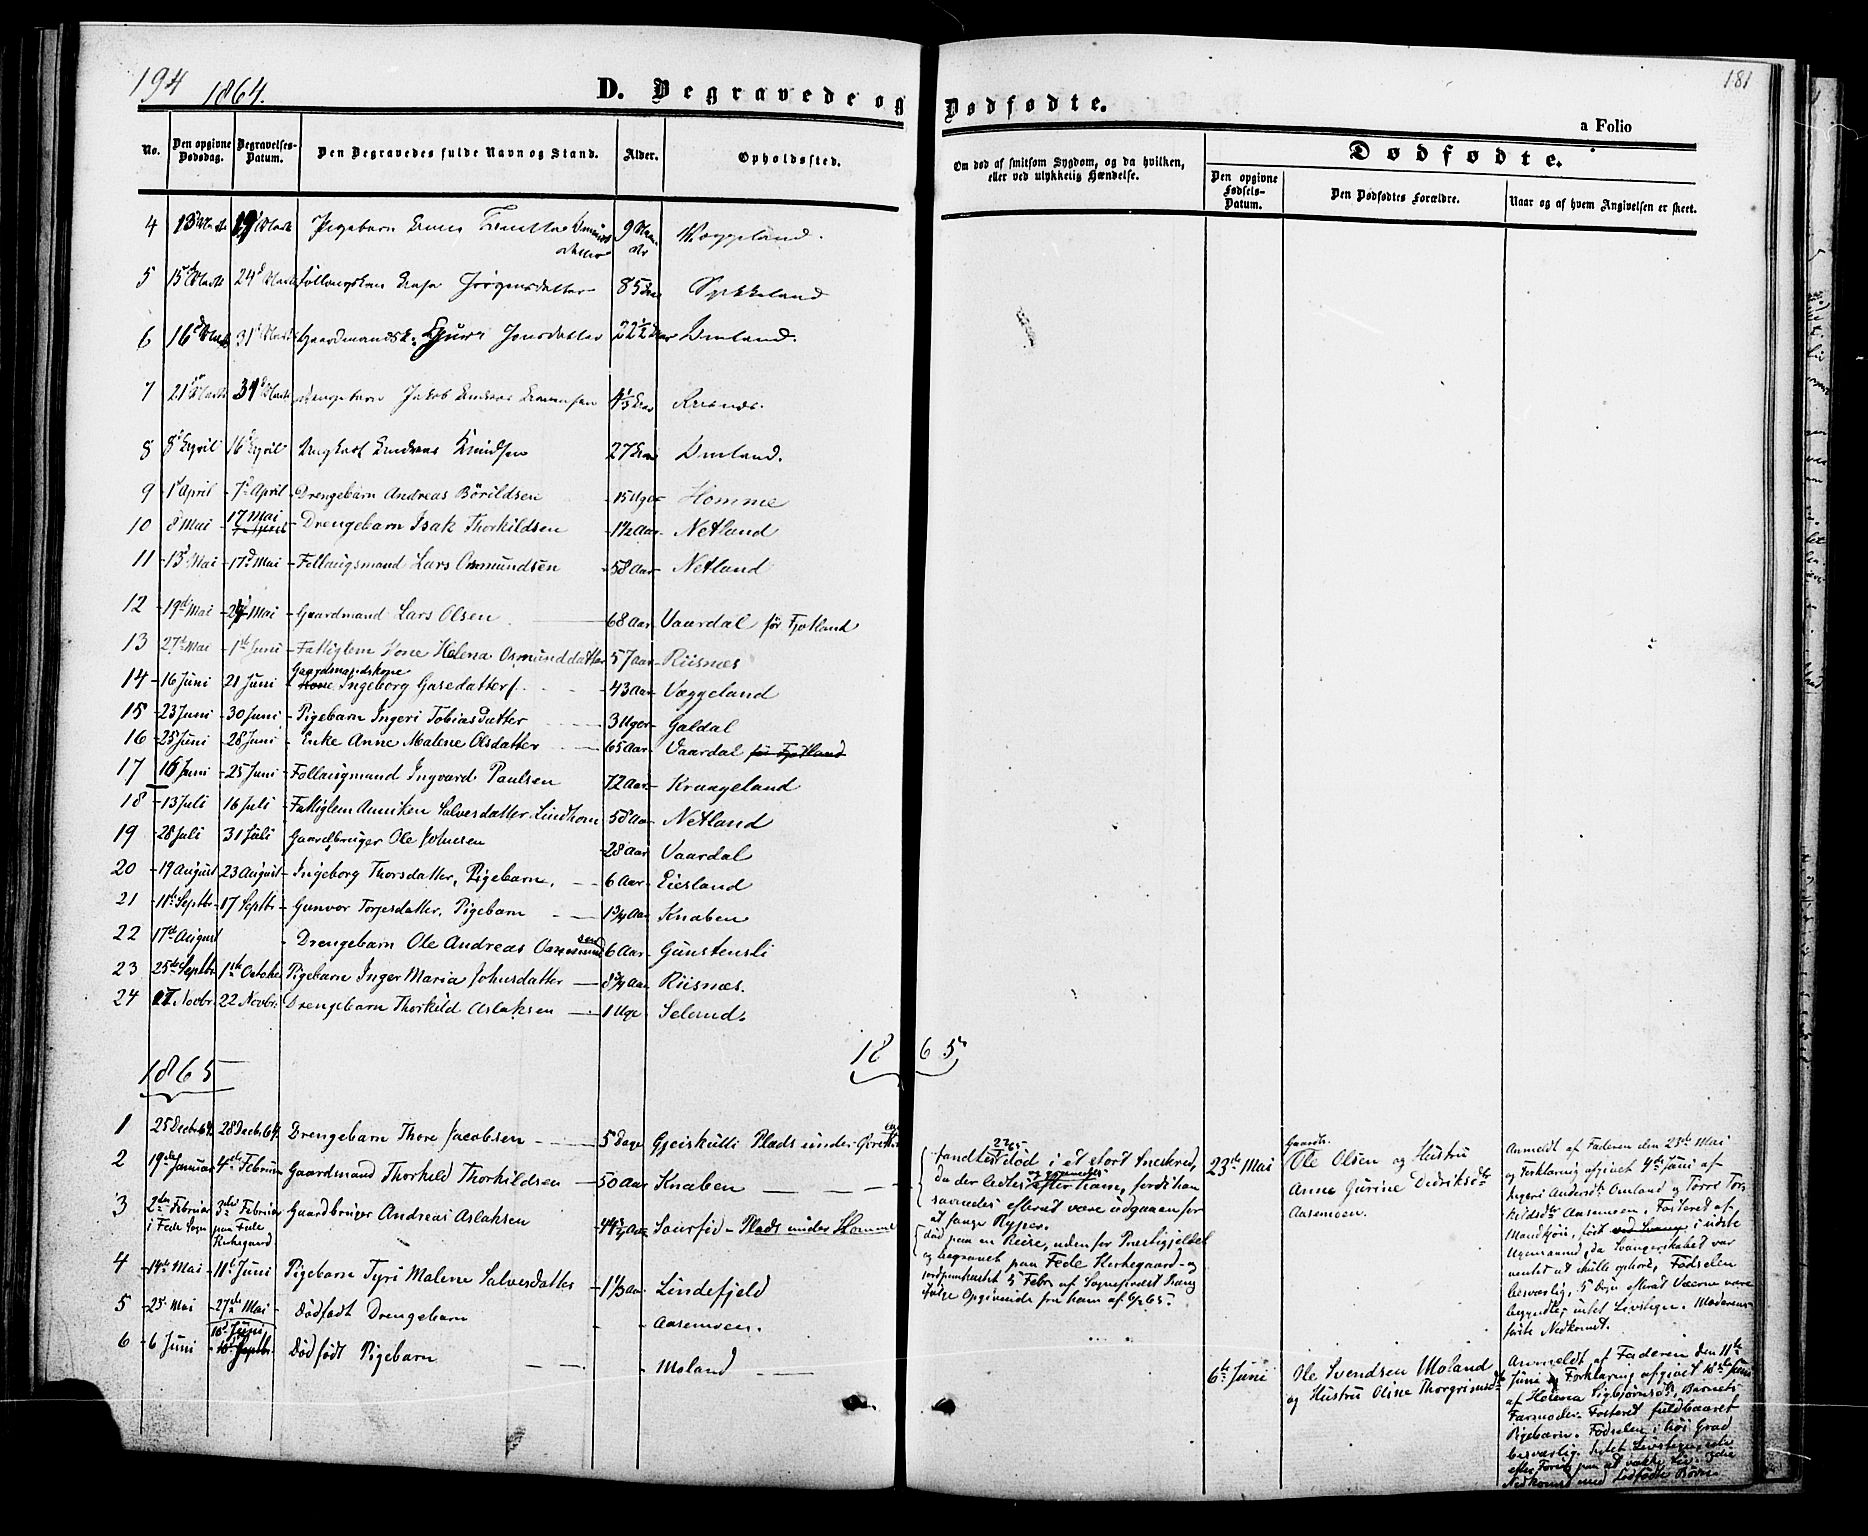 194 1864. D. Begravede og Dødfødte. 181
a Folio
No. Den opgivne Dødsdag. Begravelses-Datum. Den Begravedes fulde Navn og Stand. Alder. Opholdssted. Om død af smitsom Sygdom, og da hvilken, eller ved ulykkelig Hændelse. Dødfødte.
Den opgivne Fødsels-Datum. Den Dødfødtes Forældre. Naar og af hvem Angivelsen er skeet.
4 13 Marts 19 Marts Pigebarn 9 Maaneder Væggeland.
5 15 Marts 24 Marts Jørgensdatter 85 Aar Sykkeland
6 16 Marts 31 Marts Gaardmandsk. Guri Jonsdatter 22½ Aar Omland.
7 21 Marts 31 Marts Drengebarn Jakob Andreas 4½ Aar Risnæs.
8 8 April 16 April Ungkarl Andreas Knudsen 27 Aar Omland.
9 1 April 7 April Drengebarn Andreas Børildsen 15 Uger Homme
10 8 Mai 17 Mai Drengebarn Isak Thorkildsen 1½ Aar Netland
11 13 Mai 17 Mai Follaugsmand Lars Osmundsen 58 Aar Netland
12 19d Mai 24 Mai Gaardmand Lars Olsen 68 Aar Vaardal før Fjotland
13 27de Mai 1ste Juni Fattiglem Kone Helena Osmunddatter 57 aar Riisnæs
Gaardmandskone
14 16 Juni 21 Juni Ingeborg Gasedatter 43 Aar Væggeland
15 23 Juni 30 Juni Pigebarn Ingeri Tobiasdatter 3 Uger Galdal
16 25 Juni 28 Juni Enke Anne Malene Olsdatter 65 Aar Vaardal før Fjotland
17 16 Juni 25 Juni Follaugmand Ingvard Paulsen 72 Aar Kraageland
18 13 Juli 16 Juli Fattiglem Anniken Salvesdatter Lindhom 58 Aar Netland
19 28 Juli 31 Juli Gaardbruger Ole Johnsen 28 Aar Vaardal
20 19 August 23 August Ingeborg Thorsdatter, Pigebarn, 6 Aar Eiesland
21 11te Septbr 17 Septbr Gunvor Torjesdatter, Pigebarn 1¾ Aar Knaben
22 17d August Drengebarn Ole Andreas Aasmundsen 6 Aar Gunstensli
23 25de Septbr 1ste October Pigebarn Inger Maria Johnsdatter 8¾ Aar Riisnæs.
24 17 Novbr. 22 Novbr. Drengebarn Thorkild Aslaksen 1 Uge Seland.
1865 1865
1 25 Decbr 64. 28 Decbr. 64. Drengebarn Thore Jacobsen 5 Dage Gjeiskulli Plads under
2 19de Januar 4de Februar Gaardmand Thorkeld Thorkildsen 50 Aar Knaben
fandtes død i et stort Sneskred, da der ledtes efter ham, fordi han savnedes efterat være udgaaen for at fange Ryper.
3 2den Februar i Fede Sogn 3die Februar paa Fede Kirkegaard Gaardbruger Andreas Aslaksen 44½ Aar Plads under Homme
død paa en Reise, uden for Præstegjeldet og begravet paa Fede Kirkegaard og jordpaakastet 5 Febr. af Sognepræst ifølge Opgivende fra ham af 6/2 65.
4 14de Mai 11te Juni Pigebarn Tyri Malene Salvesdatter 1⅓ Aar Lindefjeld
5 23 Mai 27de Mai Dødfødt Drengebarn Aasemoen.
23de Mai Gaardbr. Ole Olsen og Hustru Anne Gurine Dedriksdtr Aasemoen.
Anmeldt af Faderen den 23de Mai og Forklaring afgivet 4de Juni af Ingeri Andersdtr Omland og Torre Torkildsdtr Aasemoen. Fosteret af Mandkjøn, født i sidste Ugemaaned, da Svangerskabet var ventet at skulle ophøre, Fødselen besværlig, intet Livstegn. Moderens første Nedkomst.
6 6 Juni 18d Juni Dødfødt Pigebarn Moland
6te Juni Ole Svendsen Moland og Hustru Oline Thorgrimsdtr
Anmeldt af Faderen den 11te Juni og Forklaring afgivet 18de Juni af Helena Sigbjørnsdtr, Barnets Farmoder. Fosteret fuldbaaret Pigebarn. Fødselen i høi Grad besværlig. Intet Livstegn, selv efter Forsøg paa at vække Liv. Nedkomst med dødfødte Børn.